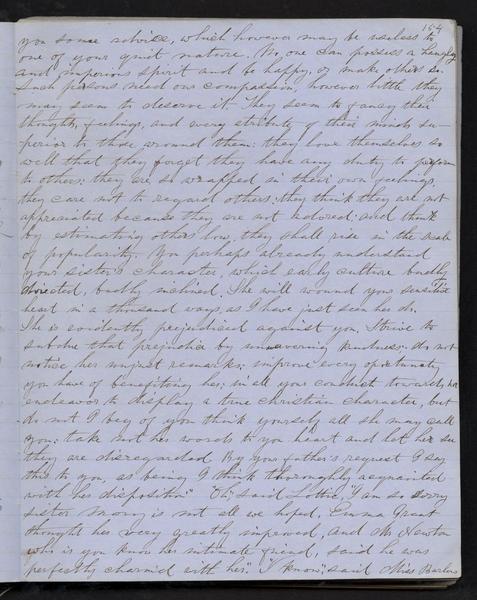 154
you some advice, which however may be useless to
one of your quiet nature. No one can possess a haughty
and imperious spirit and be happy, or make others so.
Such persons need our compassion, however little they
may seem to deserve it. They seem to fancy their
thoughts, feelings, and every atribute of their minds su-
perior to those around them: they love themselves so
well that they forget they have any duty to perform
to others; they are so wrapped in their own feelings,
they care not to regard others; they think they are not
appreciated because they are not adored; and think
by estimating others low, they shall rise in the scale
of popularity. You perhaps already understand
your sister's character, which early culture badly
directed, badly inclined. She will wound your sensitive
heart in a thousand ways, as I have just seen her do.
She is evidently prejudiced against you. Strive to
subdue that prejudice by unwavering kindness; do not
notice her unjust remarks; improve every oportunity
you have of benefiting her; in all your conduct towards her
endeavor to display a true christian character, but
do not I beg of you think yourself all she may call
you; take not her words to you heart and let her see
they are disregarded. By your father's request I say
this to you, as being I think thoroughly acquainted
with her disposition" "Oh," said Lottie, "I am so sorry
sister Mary is not all we hoped, Emma Grant
thought her very greatly improved, and Mr Newton
who is you know her intimate friend, said he was
perfectly charmed with her." "I know," said Miss Barlow